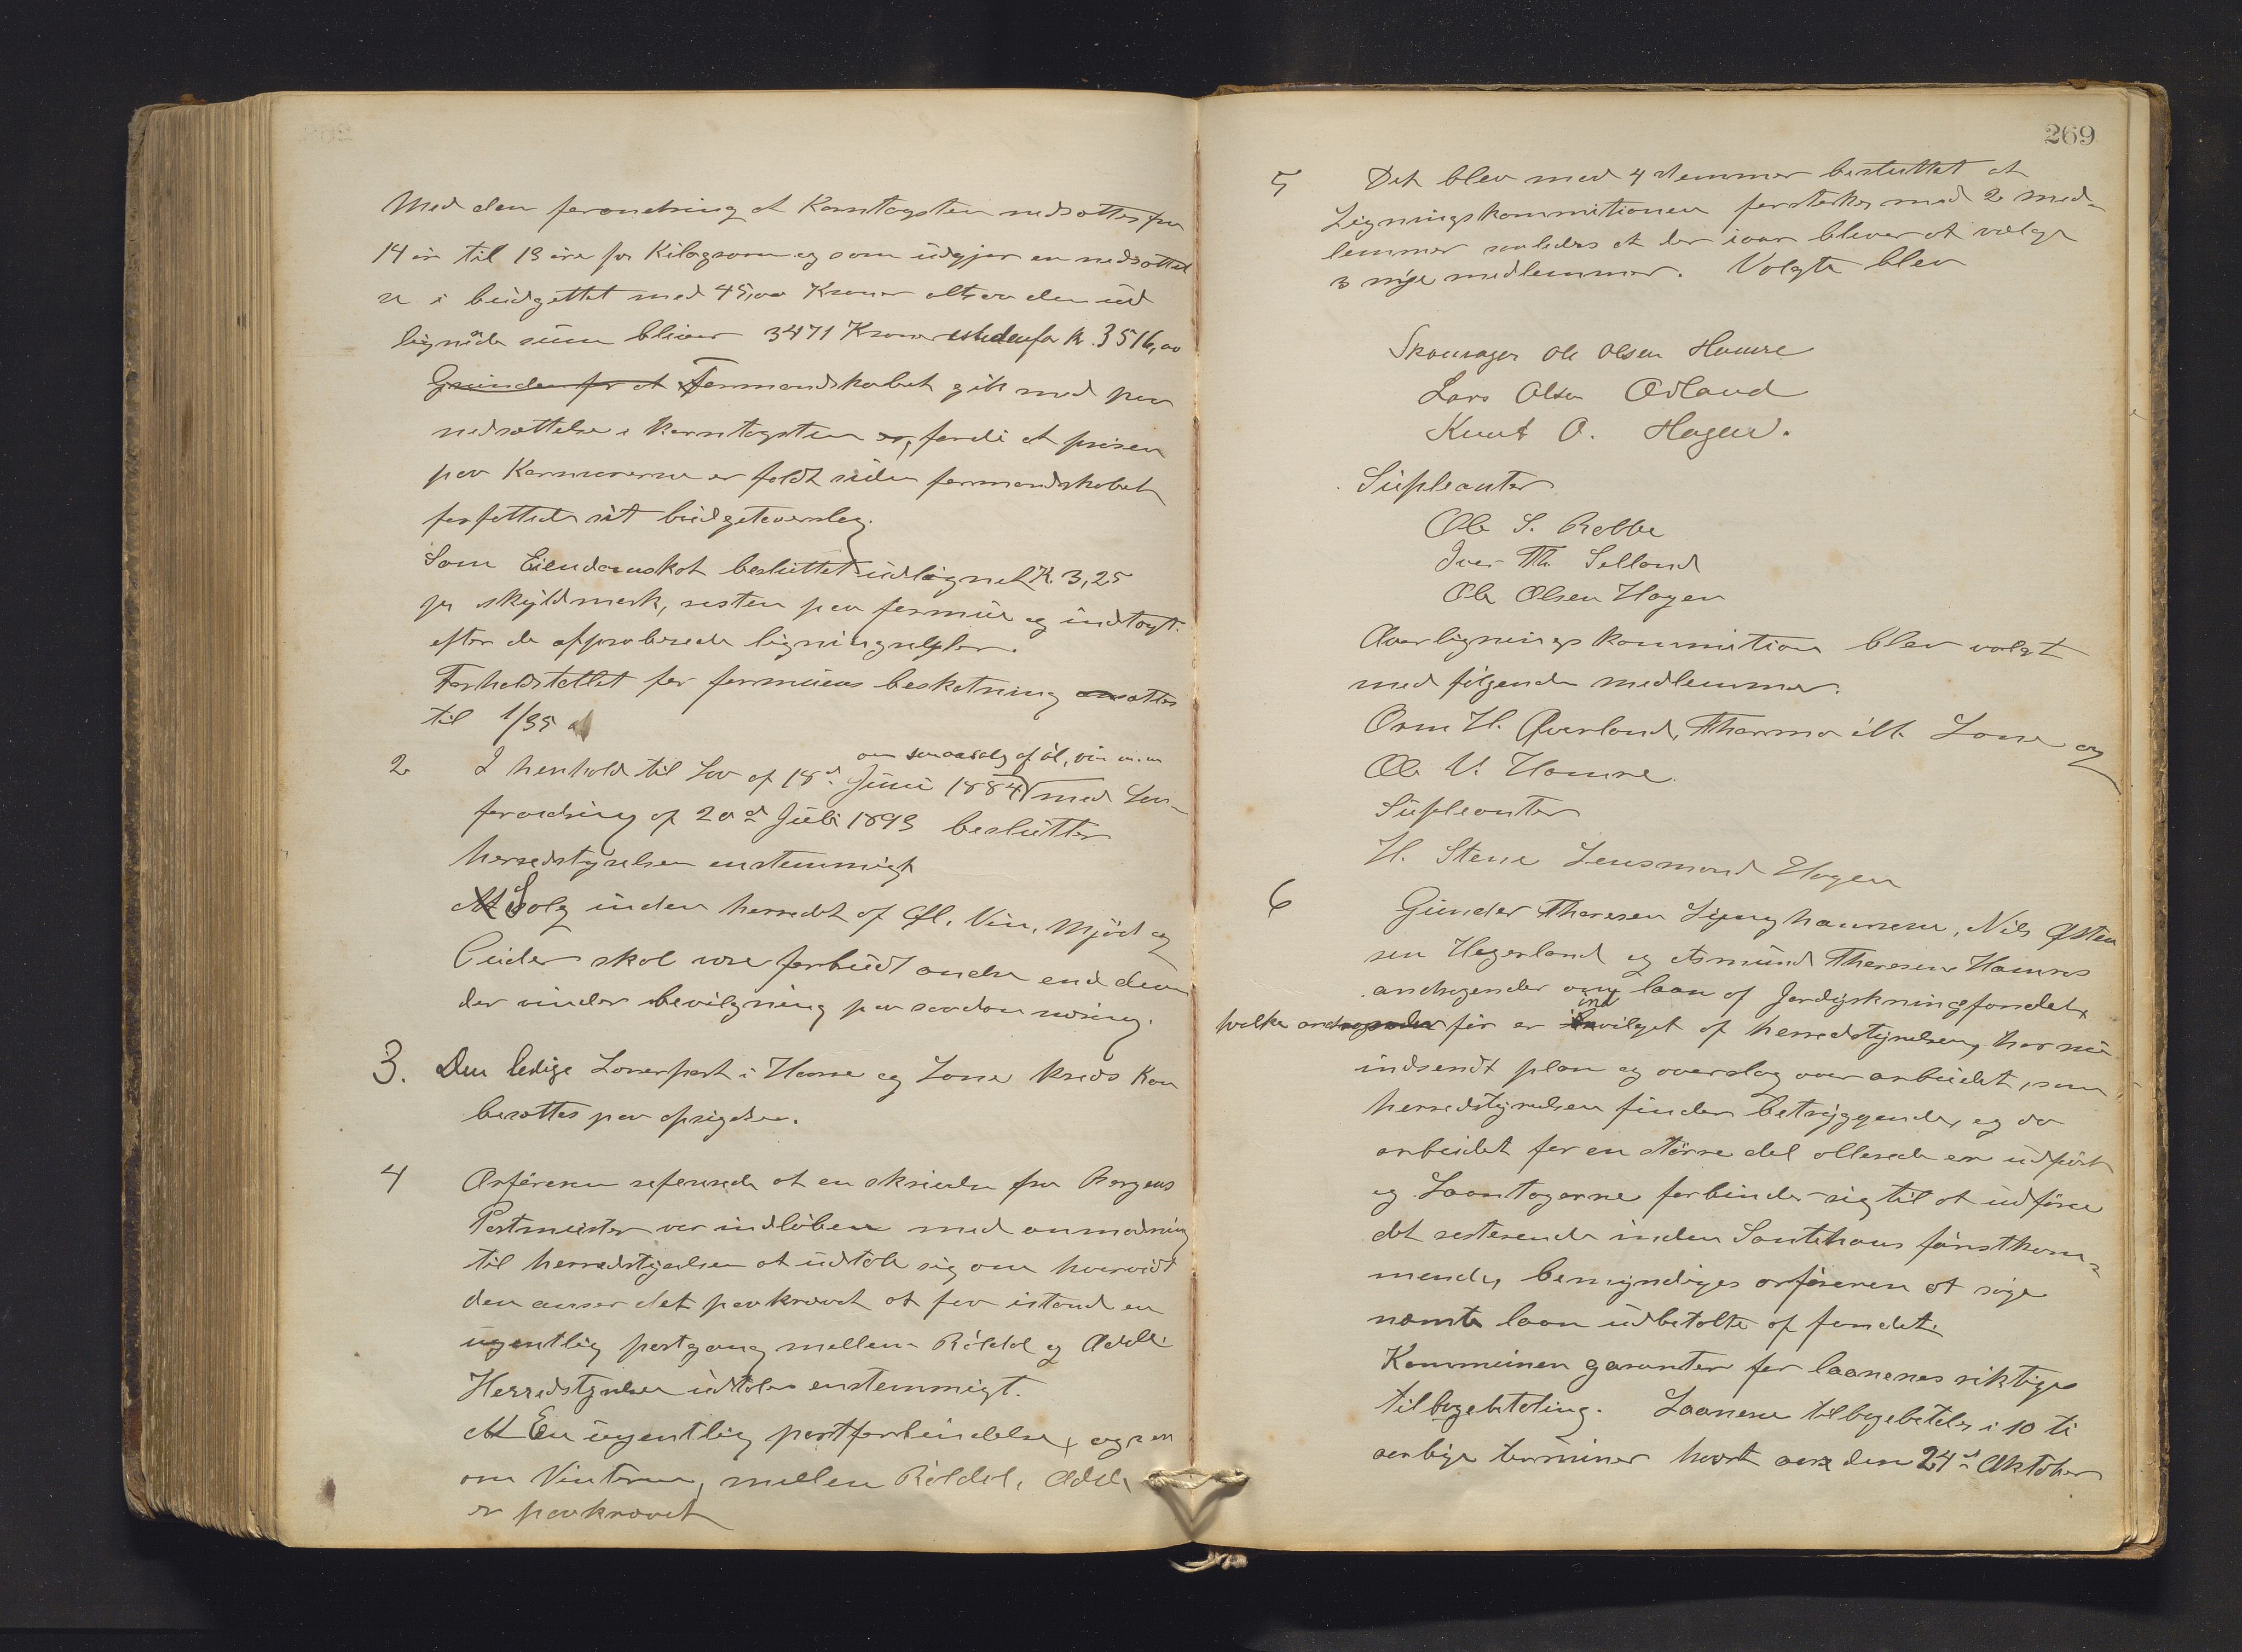 Med den forandring at Korntagsten nedsættes fra
14 øre til 13 øre pr Kilogram og som udgjør en nedsættel
se i budgettet med 45,00 Kroner altsaa den ud
lignede sum bliver 3471 Kroner istedenfor Kr. 3516,00
Grunden for at Formandskabet gik med paa
nedsættelse i Korntagsten er, fordi at prisen
paa Kornvarerne er faldt siden formandskabet
forfattede sit budgetoverslag.
Som Eiendomsskat besluttet udlignet Kr. 3,25
pr skyldmark, resten paa formue og indtægt
efter de approberede ligningsregler.
Forholdstallet for formuens beskatning ansættes
til 1/35
om smaasalg af øl, vin m.m
2 I henhold til Lov af 18d Juni 1884 med Lov-
forandring af 20d Juli 1893 beslutter
herredstyrelsen enstemmigt
At Salg inden herredet af Øl, Vin, Mjød og
Cider skal være forbudt andre end dem
der vinder bevilgning paa saadan næring.
3. Den ledige Lærerpost i Hamre og Lone kreds kan
besættes paa opsigelse.
4 Orføreren refererede at en skrivelse fra Bergens
Postmeister var indløben med anmodning
til herredstyrelsen at udtale sig om hvorvidt
den anser det paakrævet at faa istand en
ugentlig postgang mellem Røldal og Odda
Herredstyrelsen udtaler enstemmigt.
At En ugentlig postforbindelse, ogsaa
om Vinteren, mellem Røldal, Odda,
er paakrævet
269
5 Det blev med 4 stemmer besluttet at
Ligningskommitionen forsterkes med 2 med-
lemmer saaledes at der iaar bliver at vælge
3 nye medlemmer. Valgte blev
Ole Olsen Hamre
Lars Olsen Ødland
Knut O. Hagen.
Supleanter
Ole S. Rabbe
Iver Th. Selland
Ole Olsen Hagen
Overligningskommition blev valgt
med følgende medlemmer.
Orm H. Øverland, Lone og
Ole V. Hamre.
Supleanter
H. Stene Lensmand Hagen
6 Gunder Thoresen Nils Østen
sen Hegerland og Asmund Thoresen Hamres
andragender om laan af Jordyrkningsfondet,
hvilke andragender før er indvilget af herredstyrelsen, har nu
indsendt plan og overslag over arbeidet, som
herredstyrelsen finder betryggende, og da
arbeidet for en større del allerede er udført
og Laantagerne forbinder sig til at udføre
det resterende inden Santehans førstkom-
mende, bemyndiges orføreren at søge
nævnte laan udbetalte af fondet.
Kommunen garanterer for laanenes riktige
tilbagebetaling. Laanene tilbagebetales i 10 ti
aarlige terminer hvert aars den 24d Oktober